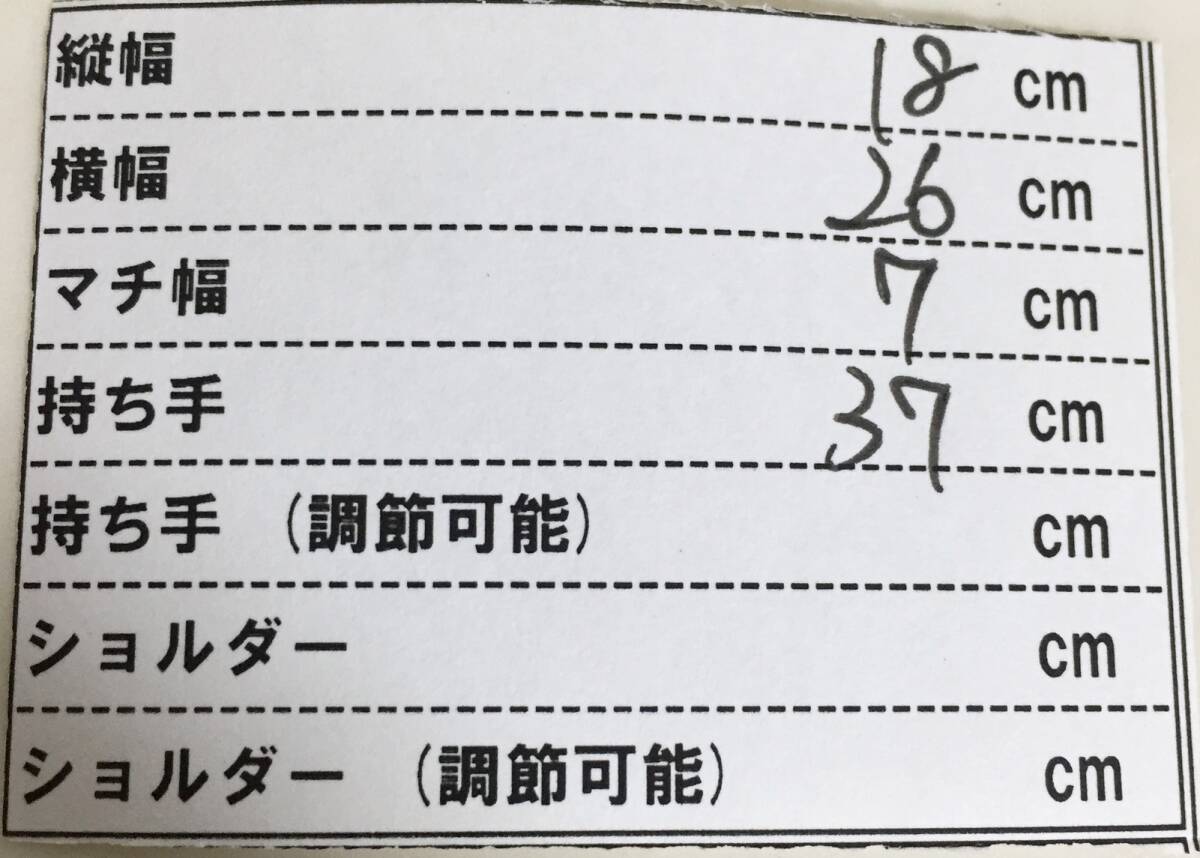 縦幅 18 cm
横幅 26 cm
マチ幅 7 cm
持ち手 37 cm
持ち手 (調節可能) cm
ショルダー cm
ショルダー (調節可能) cm